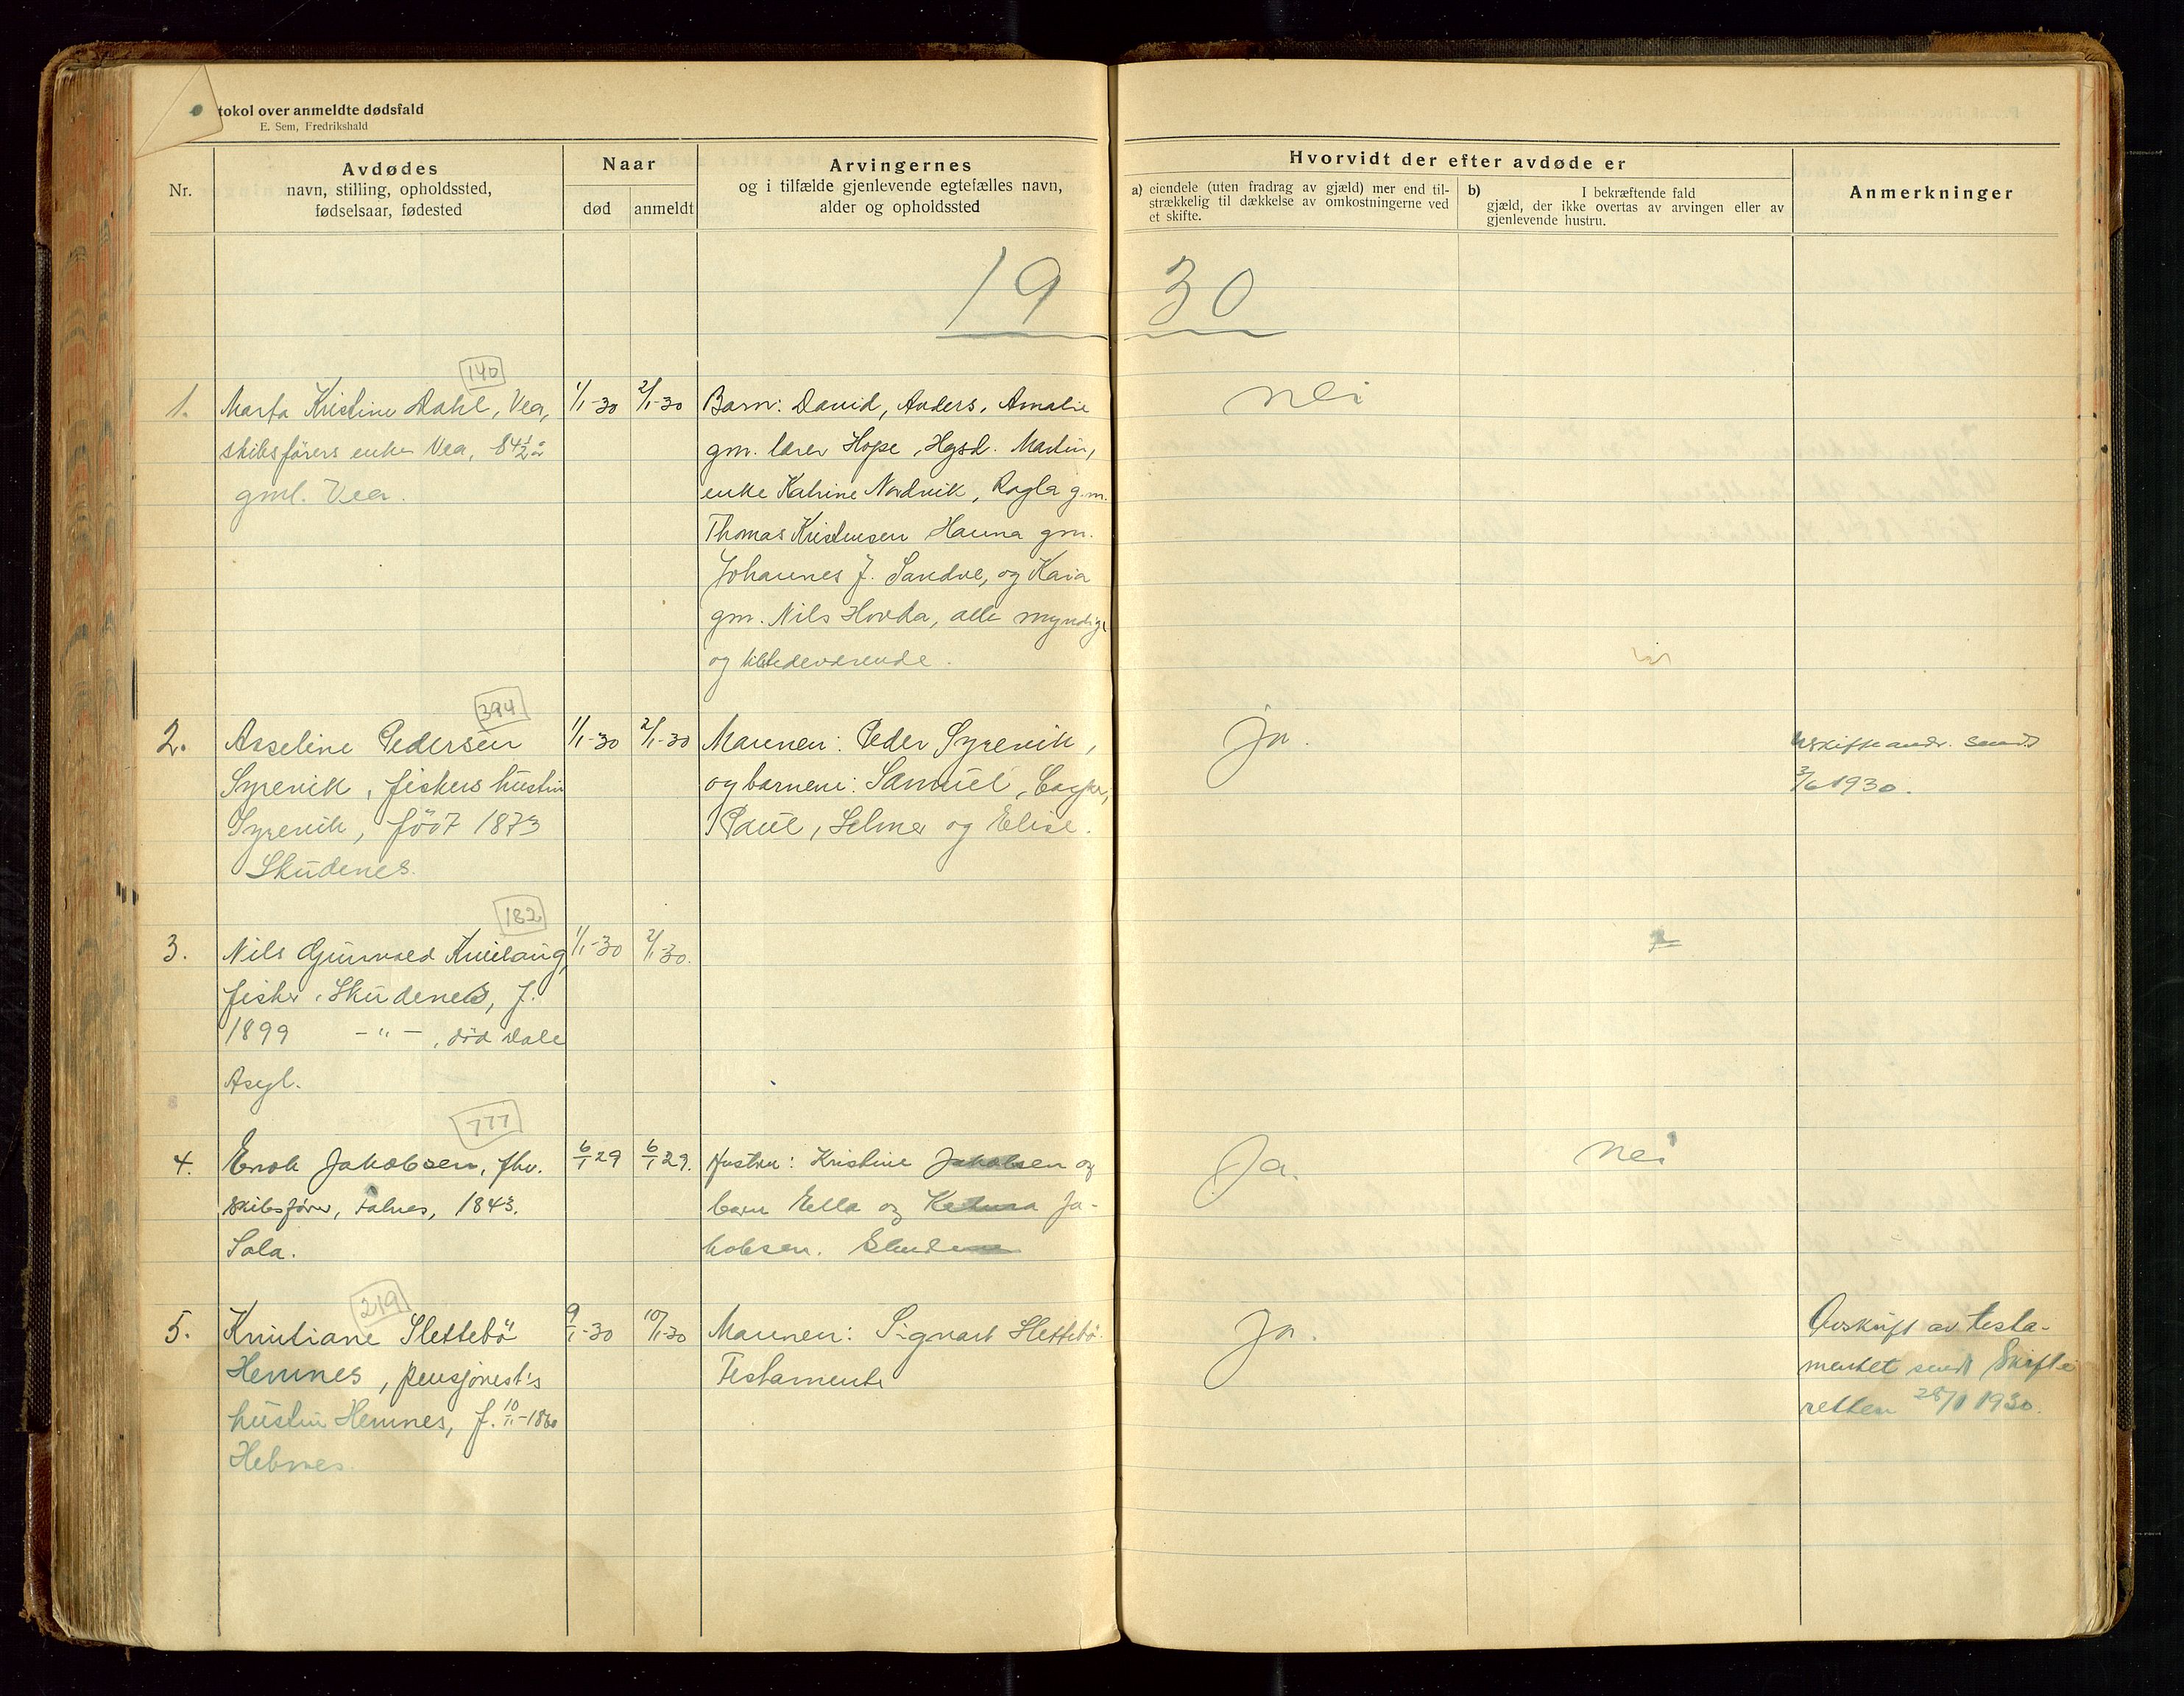 tokol over anmeldte dødsfald
E. Sem, Fredrikshald
Nr.
Avdødes
navn, stilling, opholdssted,
fødselsaar, fødested
Naar
død
anmeldt
Arvingernes
og i tilfælde gjenlevende egtefælles navn,
alder og opholdssted
Hvorvidt der efter avdøde er
a) eiendele (uten fradrag av gjæld) mer end til-
strækkelig til dækkelse av omkostningerne ved
et skifte.
b) I bekræftende fald
gjæld, der ikke overtas av arvingen eller av
gjenlevende hustru.
Anmerkninger
19 30
140
1. Marta Kristine Dahl, Vea, 1/1-30 2/1-30 Barn: David, Anders, Amalie nei
skibsførers enke Vea, 84 1/2 år gm. lærer Hope, Hgsd. Martin,
gml. Vea. enke Katrine Nordvik, Ragla g.m.
Thomas Kristensen Hanna gm.
Johannes J. Sandve, og Kaia
gm. Nils Hovda, alle myndige
og tilstedeværende.
394
2. Asseline Pedersen 1/1-30 2/1-30 Mannen: Peder Syrevik, ja. uskifteandr. sendt
Syrevik, fiskers hustru og barnene: Samuel, Casper, 3/6 1930.
Syrevik, född 1873 Paul, Selmer og Elise.
Skudenes.
182
3. Nils Gunvald Kneilaug, 1/1-30 2/1-30.
fisker, Skudenes, f.
1899 -"-, död Dale
Asyl.
777
4. Enok Jakobsen, fhv. 6/1 29 6/1 29. Hustru: Kristine Jakobsen og Ja. nei
skibsfører, Falnes, 1843. barn Ella og Ja-
Sola. kobsen.
219
5. Kristiane Slettebö 9/1-30 10/1-30 Mannen: Sigvart Slettebö. Ja. Avskrift av testa-
Hemnes, pensjonist's Testamente mentet sendt Skifte
hustru Hemnes, f. 10/11-1860 retten 28/1 1930.
Hebnes.